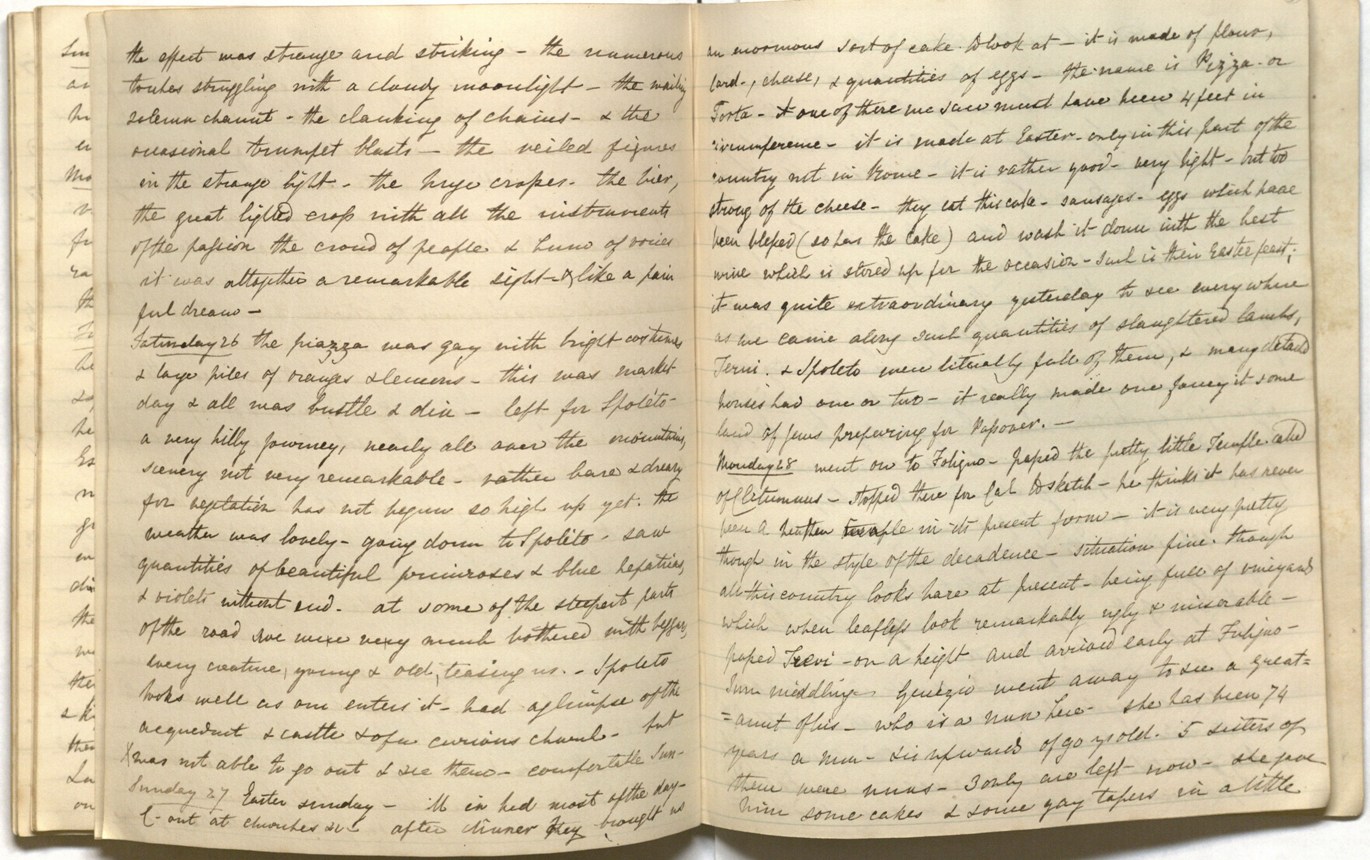 the effect was strange and striking - the numerous
torches struggling with a cloudy moonlight - the wailing
solemn chaunt - the clanking of chains - & the
occasional trumpet blasts - the veiled figures
in the strange light - the huge crosses - the bier,
the great lighted cross with all the instruments
of the passion the crowd of people & hum of voices
it was altogether a remarkable sight - & like a pain
ful dream -
Saturday 26 the piazza was gay with bright costumes
& large piles of oranges & lemons - this was market
day & all was bustle & din - left for Spoleto -
a very hilly journey, nearly all over the mountains,
scenery not very remarkable - rather bare & dreary
for vegetation has not begun so high up yet. the
weather was lovely - going down to Spoleto - saw
quantities of beautiful primroses & blue hepaticas,
& violets without end. at some of the steepest parts
of the road we were very much bothered with beggars,
every creature, young & old, teasing us. - Spoleto
looks well as one enters it - had a glimpse of the
acqueduct & castle & of a curious church - but
X was not able to go out & see them - comfortable Inn -
Sunday 27 Easter Sunday - ill in bed most of the day -
C - out at churches &c - after dinner they brought us
an enormous sort of cake to look at - it is made of flour,
lard -, cheese, & quantities of eggs - the name is Pizza - or
Torta - & one of these we saw must have been 4 feet in
circumference - it is made at Easter - only in this part of the
country not in Rome - it is rather good - very light - but too
strong of the cheese - they eat this cake - sausages - eggs which have
been blessed (so has the cake) and wash it down with the best
wine which is stored up for the occasion - such is their Easter feast;
it was quite extraordinary yesterday to see everywhere
as we came along such quantities of slaughtered lambs,
Terni. & Spoleto were literally full of them, & many detached
houses had one or two - it really made one fancy it some
land of Jews preparing for Passover. -
Monday 28 went on to Foligno - passed the pretty little Temple called
of Clitumnus - stopped there for Carl to sketch - he thinks it has never
been a heathen temple in its present form - it is very pretty
though in the style of the decadence - situation fine. though
all this country looks bare at present - being full of vineyards
which when leafless look remarkably ugly & miserable -
passed Trevi - on a height and arrived early at Fuligno -
Inn middling - went away to see a great=
=aunt of his - who is a nun here - she has been 74
years a nun - & is upwards of 90 ys old. 5 sisters of
them were nuns - 3 only are left now - she gave
him some cakes & some gay tapers in a little